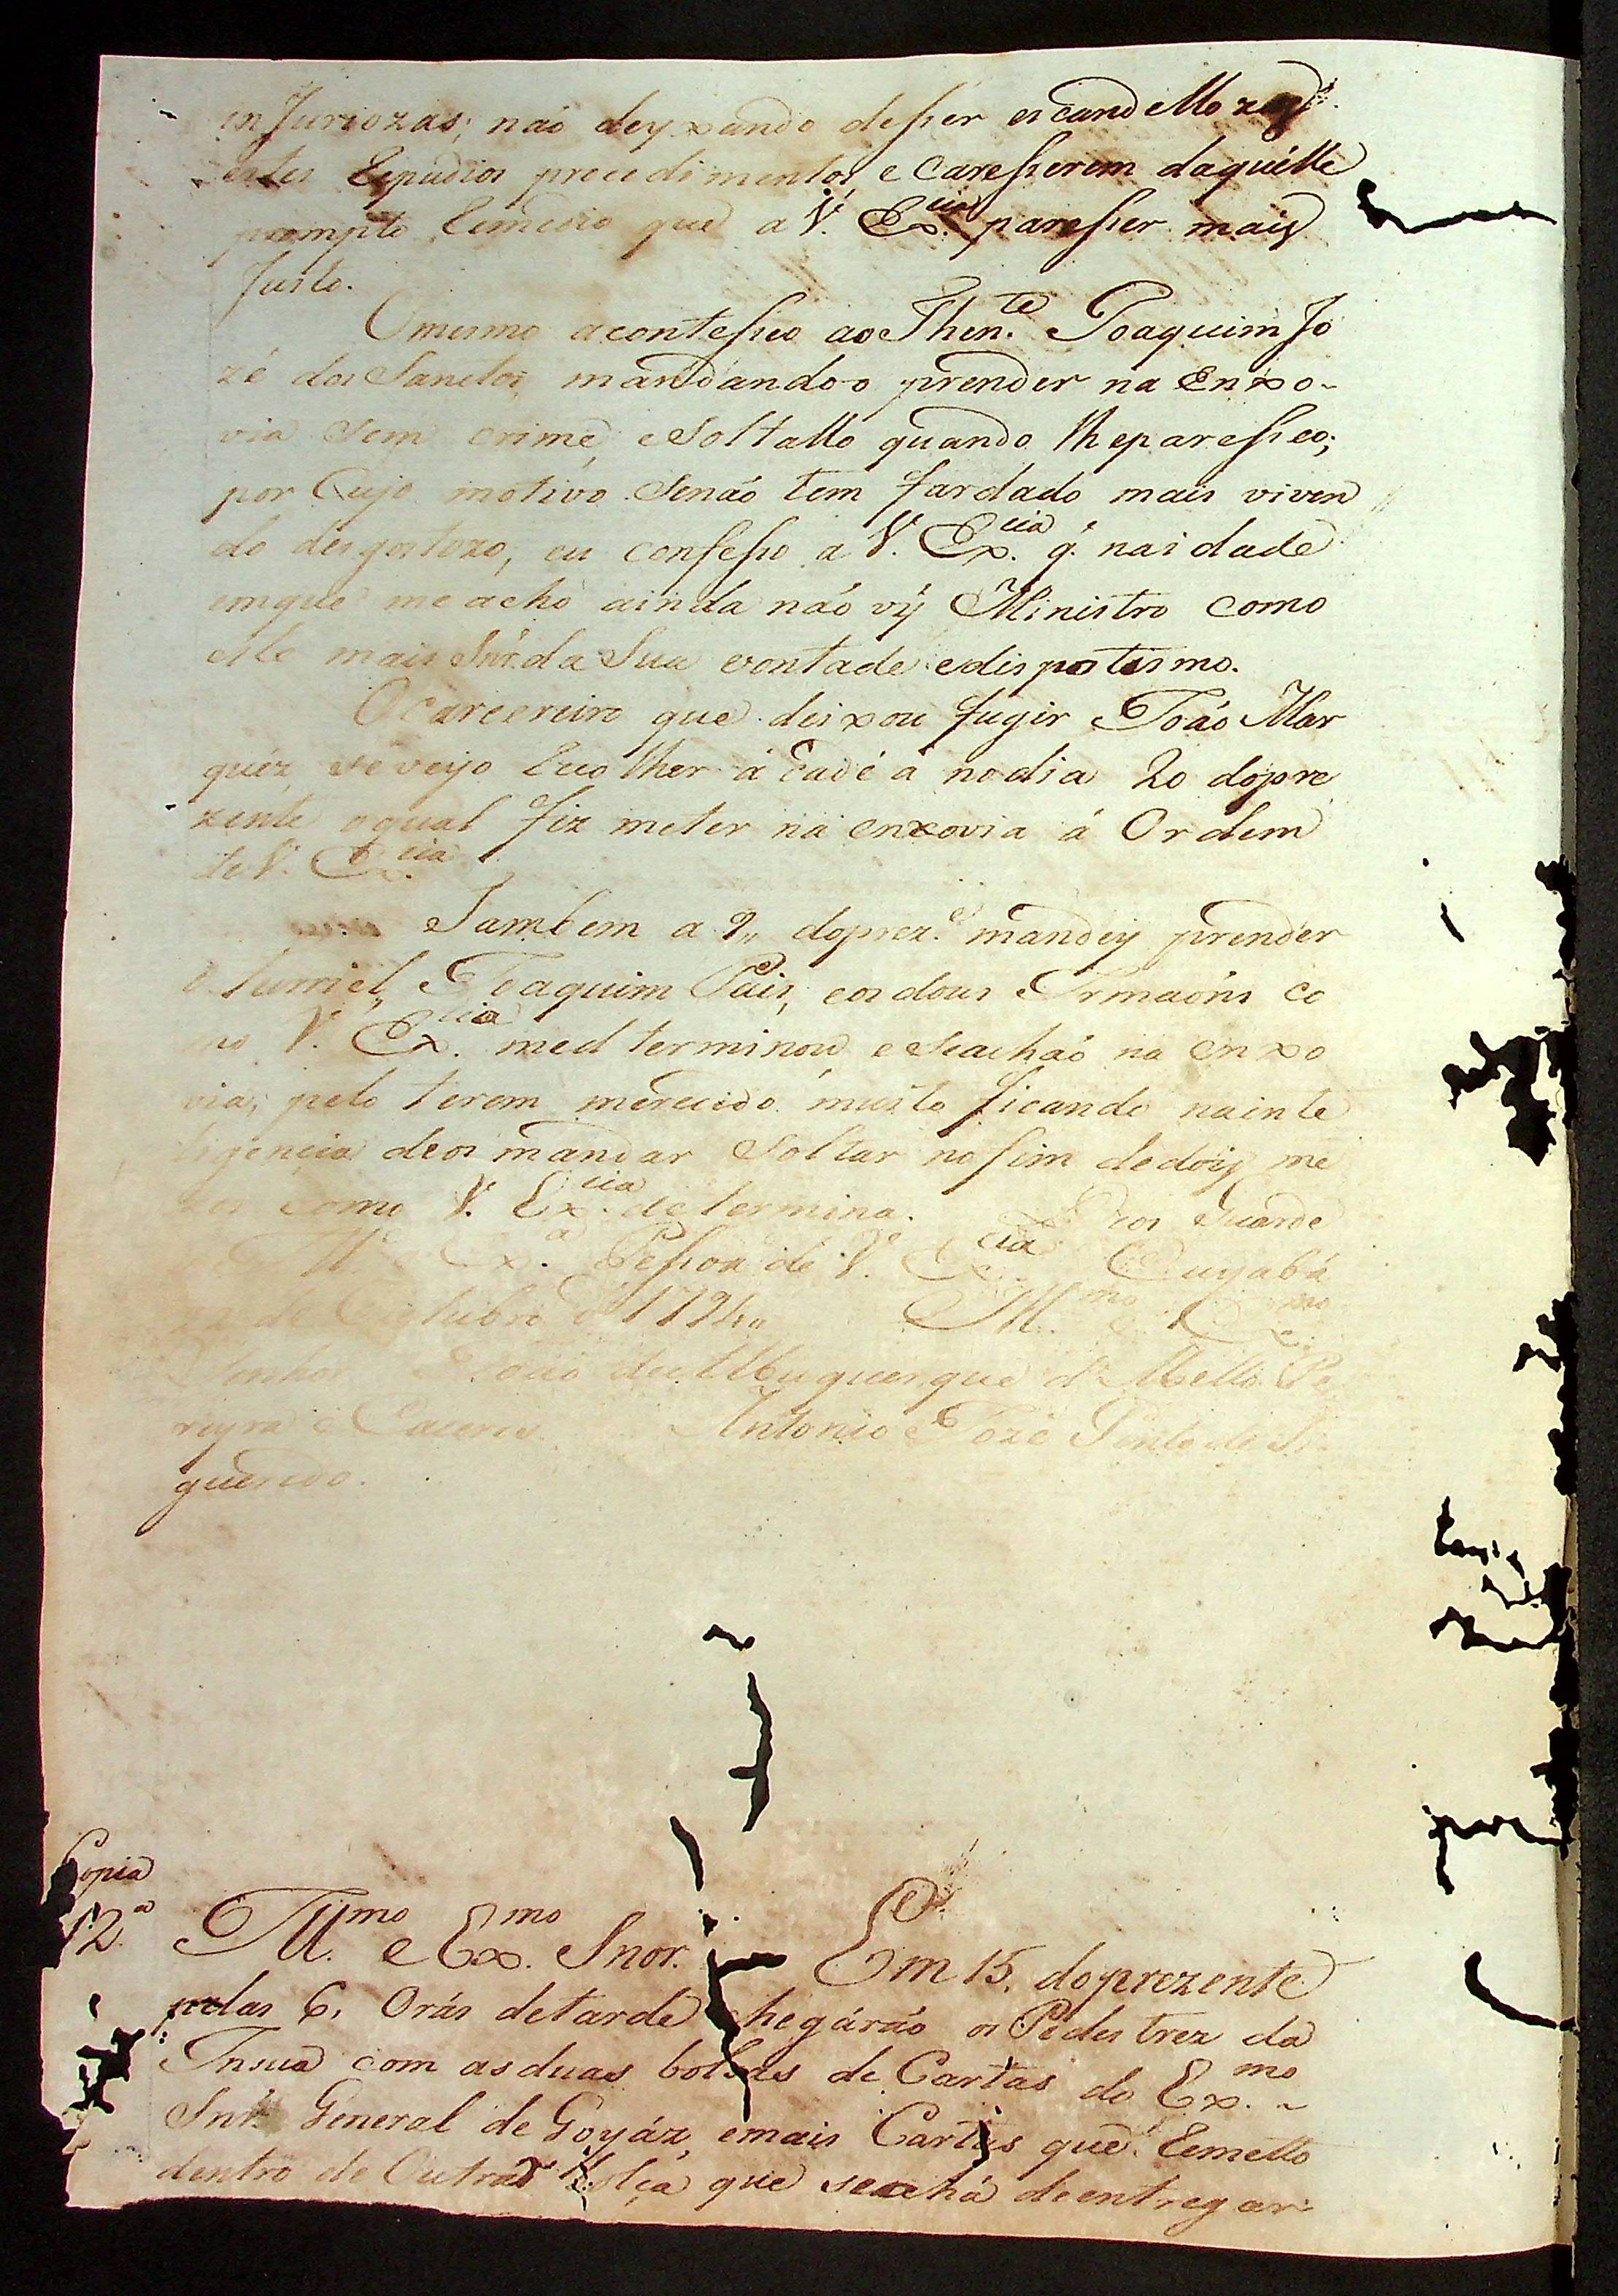 injuriozas; naõ deyxando desser escandellozos
estes Repudios procedimentos, e caresserem daquélle
prompto Remedio que a V. Ex.cia paresser mais
Justo.
O mesmo acontesseo ao Then.te Joaquim Jo
zé dos Sanctos, mandando-o prender na Enxo-
via sem crime, e soltallo quando lhe paresseo;
por cujo motivo senaõ tem fardado mais viven
do desgostozo, eu confesso a V. Ex.cia q. na idade
emque me acho ainda naõ vÿ Ministro como
este mais Snr. da Sua vontade edispostismo.
O carcereiro que deixou fugir Joaõ Mar
quez, se veyo Recolher á Cadéa no dia 20 dopre
zente oqual fiz meter na enxovia á Ordem
de V. Ex.cia
Tambem a 9,, doprez.e mandey prender
Joaquim Pais, eos dous Irmaõns co
mo V. Ex.cia med terminou, eseachaõ na enxo
via; pelo terem merecido muito ficando nainte
ligencia deos mandar Soltar no fim dedoiz me
zes como V. Ex.cia determina. Deos Guarde
a Ill.e Ex.a Pessoa de V. Ex.cia Cuyabá
de Outubro d' 1794,, Ill.mo e Ex.mo
Senhor Joaõ de Albuquerque d' Mello Pe
reyra e Caceres Antonio Joze Pinto de Fi
gueiredo.
Copia
12.a Ill.mo e Ex.mo Snor. Em 15, do prezente
pelas 6, Orás detarde chegáraõ os Pedestrez da
Insua com asduas bolsas de Cartas do Ex.mo
Snr. General de Goyáz, emais Cartas que Remetto
dentro de Outra bolça que se achá deentregar